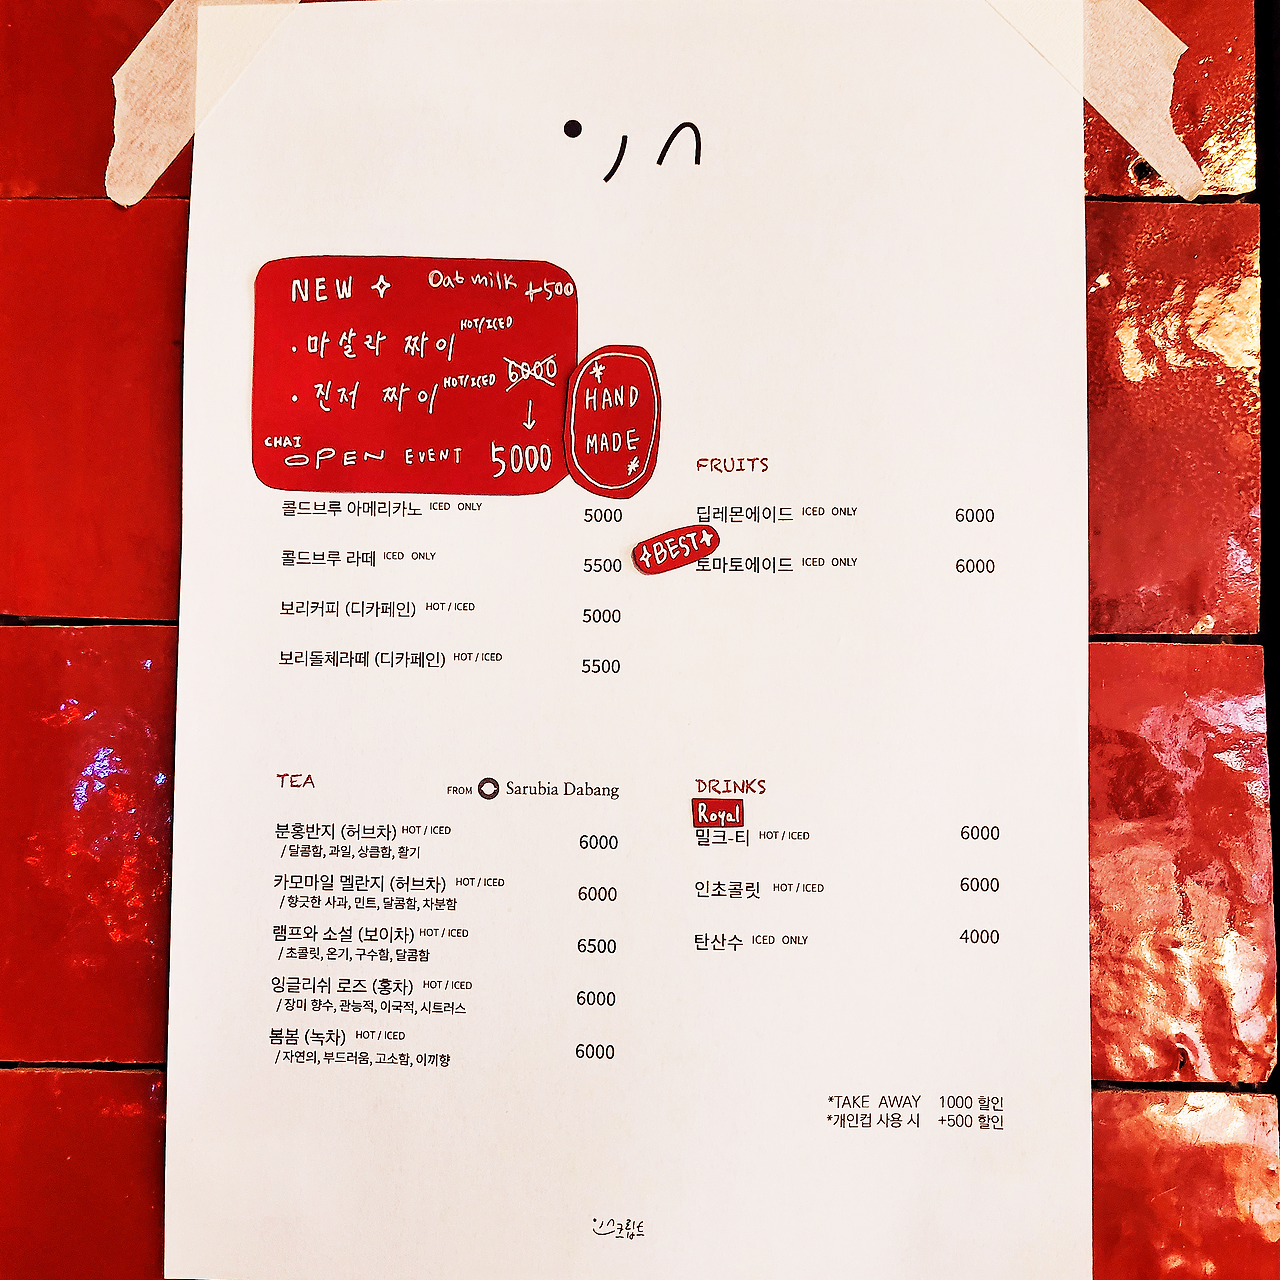 NEW Oat milk +500
· 마살라 짜이 HOT/ICED
· 진저 짜이 HOT/ICED 6000
↓
CHAI OPEN EVENT 5000
* HAND MADE *
콜드브루 아메리카노 ICED ONLY 5000
콜드브루 라떼 ICED ONLY 5500
보리커피 (디카페인) HOT / ICED 5000
보리돌체라떼 (디카페인) HOT / ICED 5500
FRUITS
딥레몬에이드 ICED ONLY 6000
BEST
토마토에이드 ICED ONLY 6000
TEA FROM Sarubia Dabang
분홍반지 (허브차) HOT / ICED 6000
/ 달콤함, 과일, 상큼함, 활기
카모마일 멜란지 (허브차) HOT / ICED 6000
/ 향긋한 사과, 민트, 달콤함, 차분함
램프와 소설 (보이차) HOT / ICED 6500
/ 초콜릿, 온기, 구수함, 달콤함
잉글리쉬 로즈 (홍차) HOT / ICED 6000
/ 장미 향수, 관능적, 이국적, 시트러스
봄봄 (녹차) HOT / ICED 6000
/ 자연의, 부드러움, 고소함, 이끼향
DRINKS
Royal
밀크-티 HOT / ICED 6000
인초콜릿 HOT / ICED 6000
탄산수 ICED ONLY 4000
*TAKE AWAY 1000 할인
*개인컵 사용 시 +500 할인